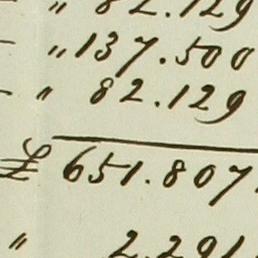 " 82.129
" 137.500
" 82.129
£ 651.807.
" 2.291